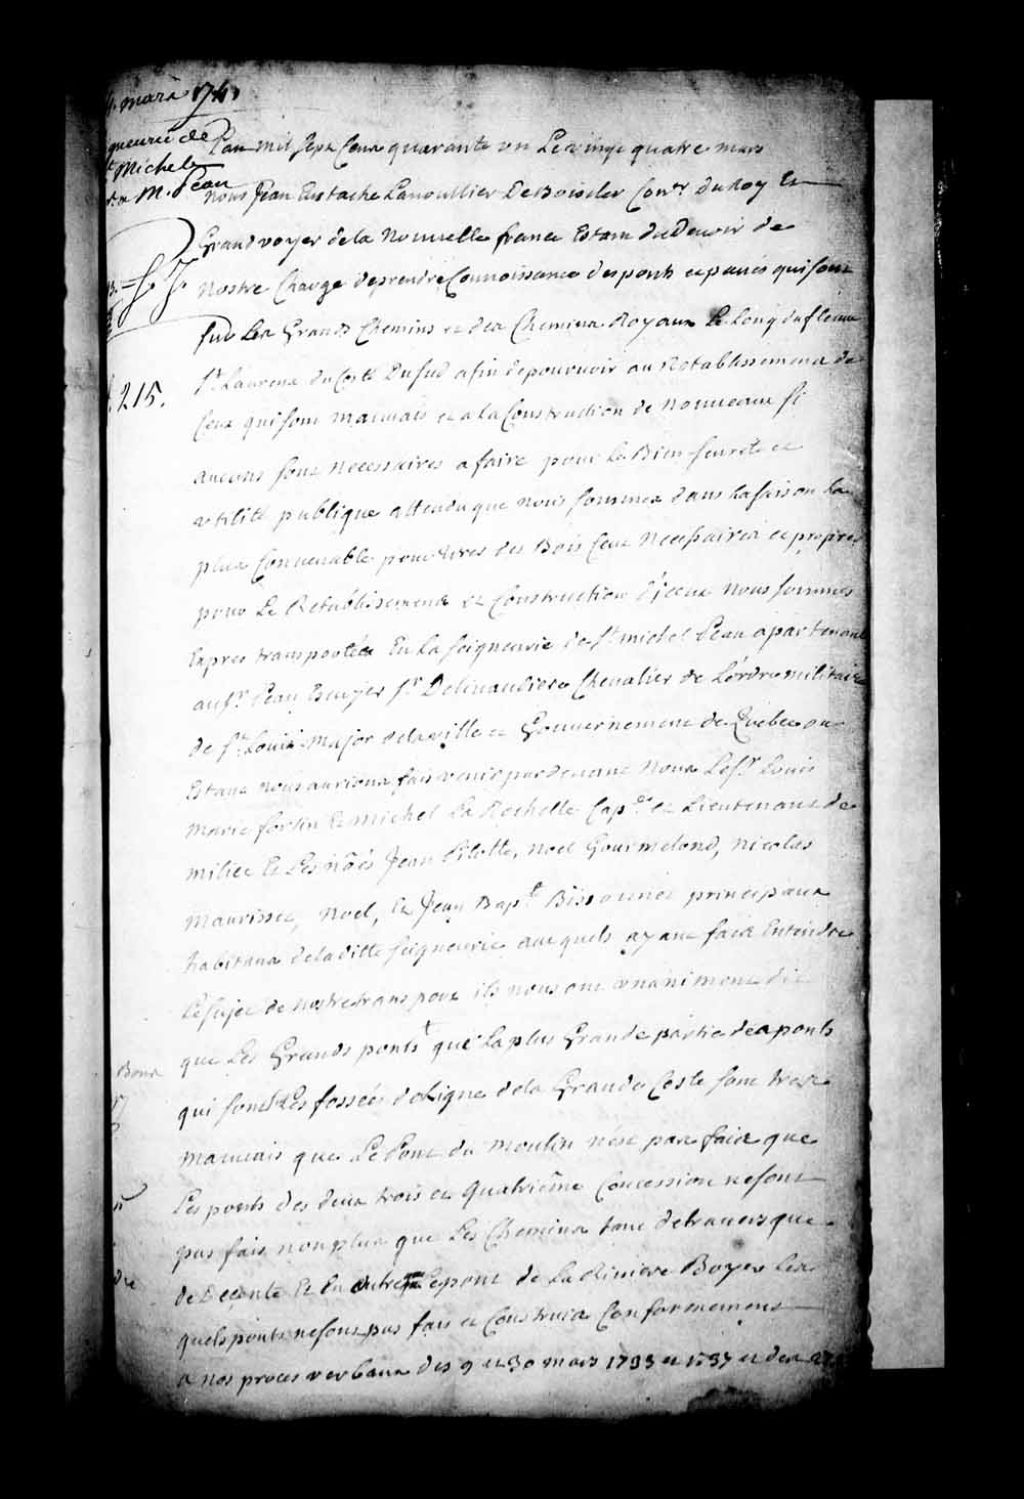 4. mars 1741
gneurie de
St Michel
M. Pean
215.
Lan mil sept Cens quarante un Le vingt quatre mars
Nous Jean Eustache Lanoullier DeBoiscler Conер du Roy Et
Grand voyer dela Nouvelle france Estant du Devoir de
Nostre Charge deprendre Connoissance des ponts et pavés qui sont
sur Les Grands Chemins et des Chemins Royaux Le Long du fleuve
St. Laurens du Costé Du Sud afin depourvuoir au Retablissement de
Ceux qui sont mauvais et a la Construction de Nouveaux si
aucuns sont necessaires a faire pour Le Bien seureté et
utilité publique attendu que nous sommes dans la saison La
plus Convenable pour tirer des Bois Ceux Necessaires et propres
pour Le Retablissement et Construction d'iceux Nous sommes
Expres transportés En La seigneurie de St michel Pean apartenant
au Sr. Pean Escuyer Sr. Delivaudiere Chevalier de L'ordre militaire
de St. Louis Major dela ville et Gouvernement de Quebec ou
Estant Nous aurions fait venir pardevant Nous Le Sr. Louis
Marie fortin Et michel La Rochelle Cap.ne et Lieutenant de
milice Et Les nōés Jean Pilotte, noel Gourmelond, nicolas
Maurisse, Noel, Et Jean Bap.t Bissonnet principaux
habitans deladitte seigneurie auxquels ayant fait Entendre
Le sujet de nostre transport ils nous ont unanimement dit
que Les Grands ponts que La plus Grande partie des ponts
qui sont Les fossées de Ligne dela Grande Coste sont tres
mauvais que Le Pont du moulin n'est pas fait que
Les ponts des deux trois et quatrième Concession ne sont
pas fais non plus que Les Chemins tant detravers que
de Decente Et En outre Le pont de La Riviere Boyer Les
quels ponts ne sont pas fais et Construis Conformement
a nos proces verbaux des 9 et 30 mars 1733 et 1737 et des 27